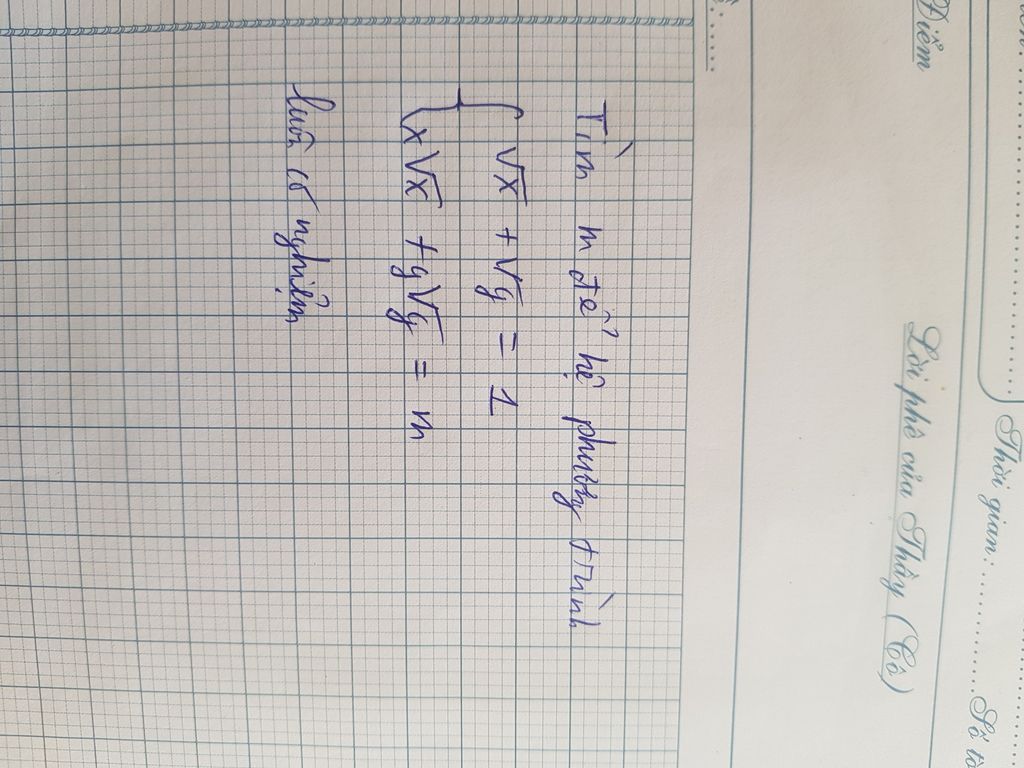 Điểm
Lời phê của Thầy (Cô)
Thời gian:
Tìm m để hệ phương trình
√x + √y = 1
x√x + y√y = m
luôn có nghiệm